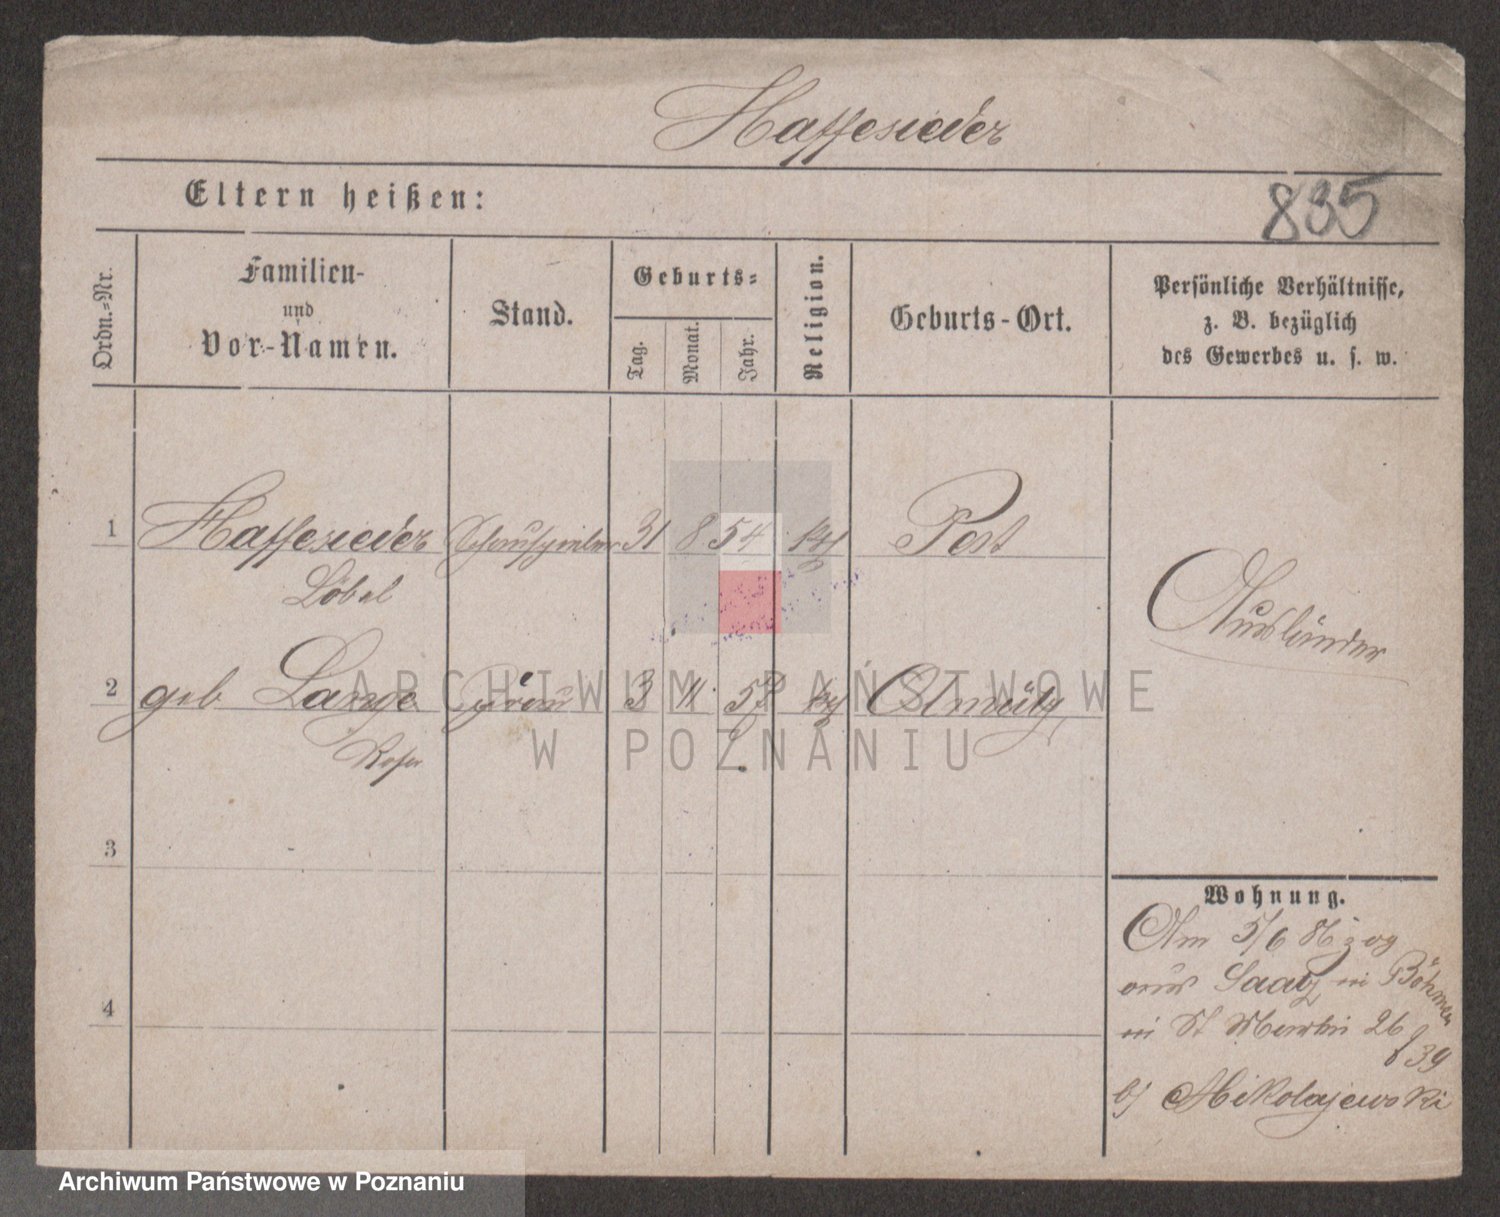 Kaffesieder
Eltern heißen:
835
Ordn.-Nr.
Familien-
und
Vor-Namen.
Stand.
Geburts-
Tag.
Monat.
Jahr.
Religion.
Geburts-Ort.
Persönliche Verhältnisse,
z. B. bezüglich
des Gewerbes u. s. w.
1 Kaffesieder Schauspieler 31 8 54 Pest
Löbel
Ausländer
2 geb Lange Frau 3 11 57 Olmütz
Rosa
ARCHIWUM PAŃSTWOWE
W POZNANIU
3
Wohnung.
Am 5/6 zog
aus Saatz in Böhmen
4
in St Martin 26
f 39
b/ Mikolajewski
Archiwum Państwowe w Poznaniu